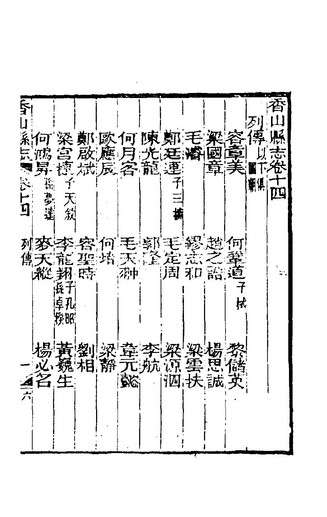 香山縣志卷十四
列傳以下縣舊志
容章美 何鞏道子栻 黎儲英
梁國章 趙之誥 楊思誠
毛 繆志和 梁雲扶
鄭廷連子三 毛定周 梁源泗
陳光龍 郭 李航
何月客 毛天翀 韋元懿
歐應辰 何 梁靜
鄭啟斌 容聖時 劉相
梁宮標子天敘 李龍翔子孔昭 黃巍生
何鴻昇 麥天縱 楊必名
香山縣志 卷十四 列傳 一